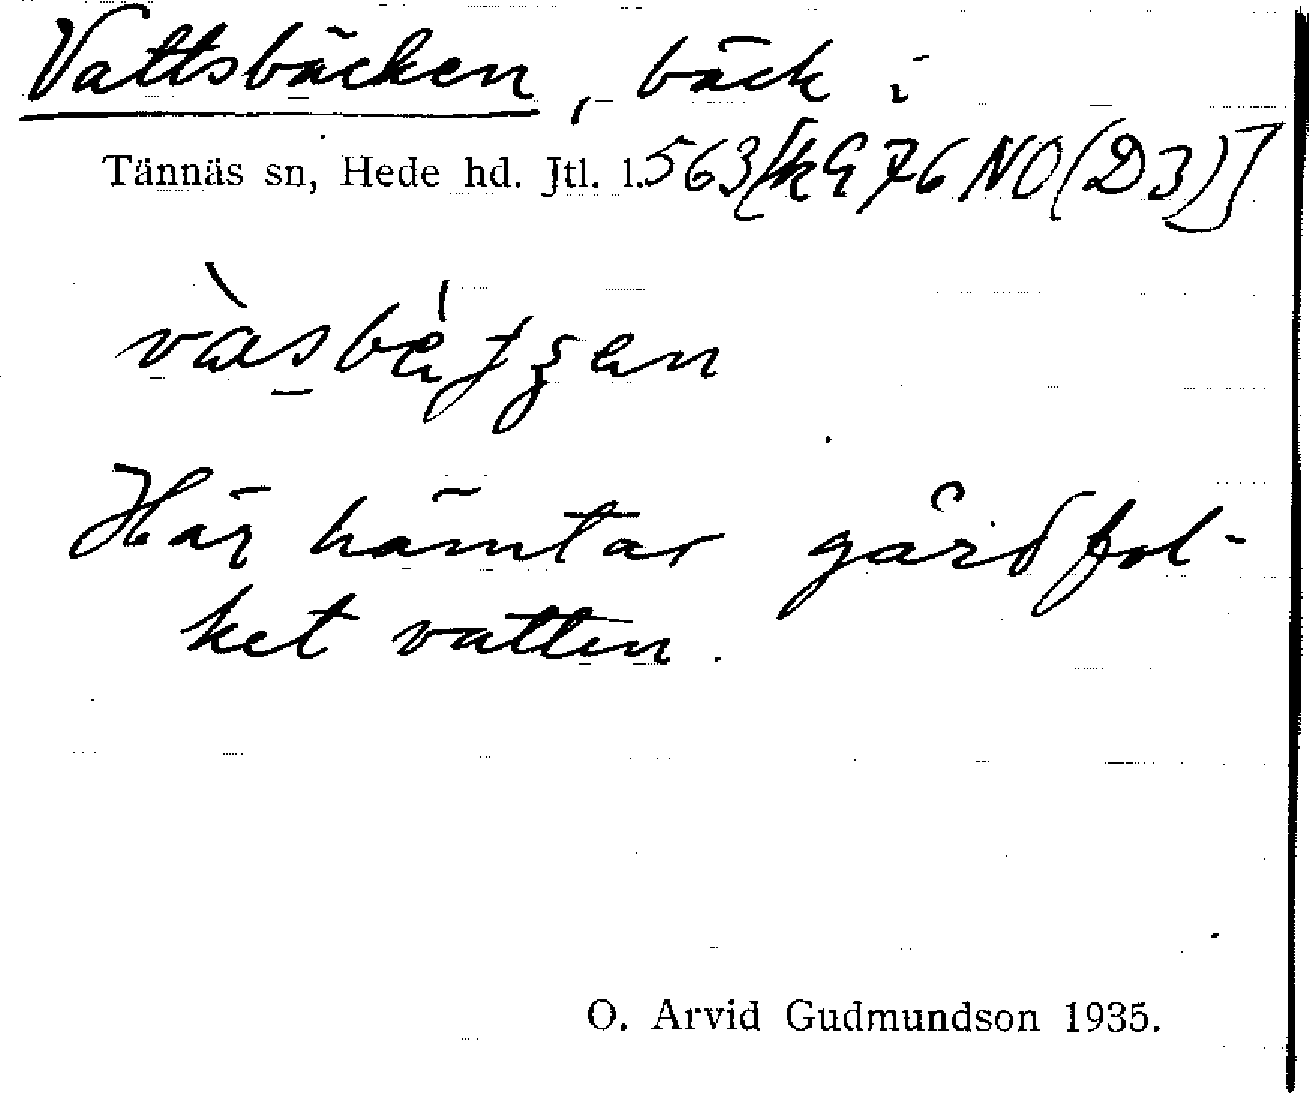 Vattsbäcken, bäck i
Tännäs sn, Hede hd. Jtl. l. 563/[kG 76 NO (D3)]
Här hämtar gårdfol-
ket vatten.
O. Arvid Gudmundson 1935.